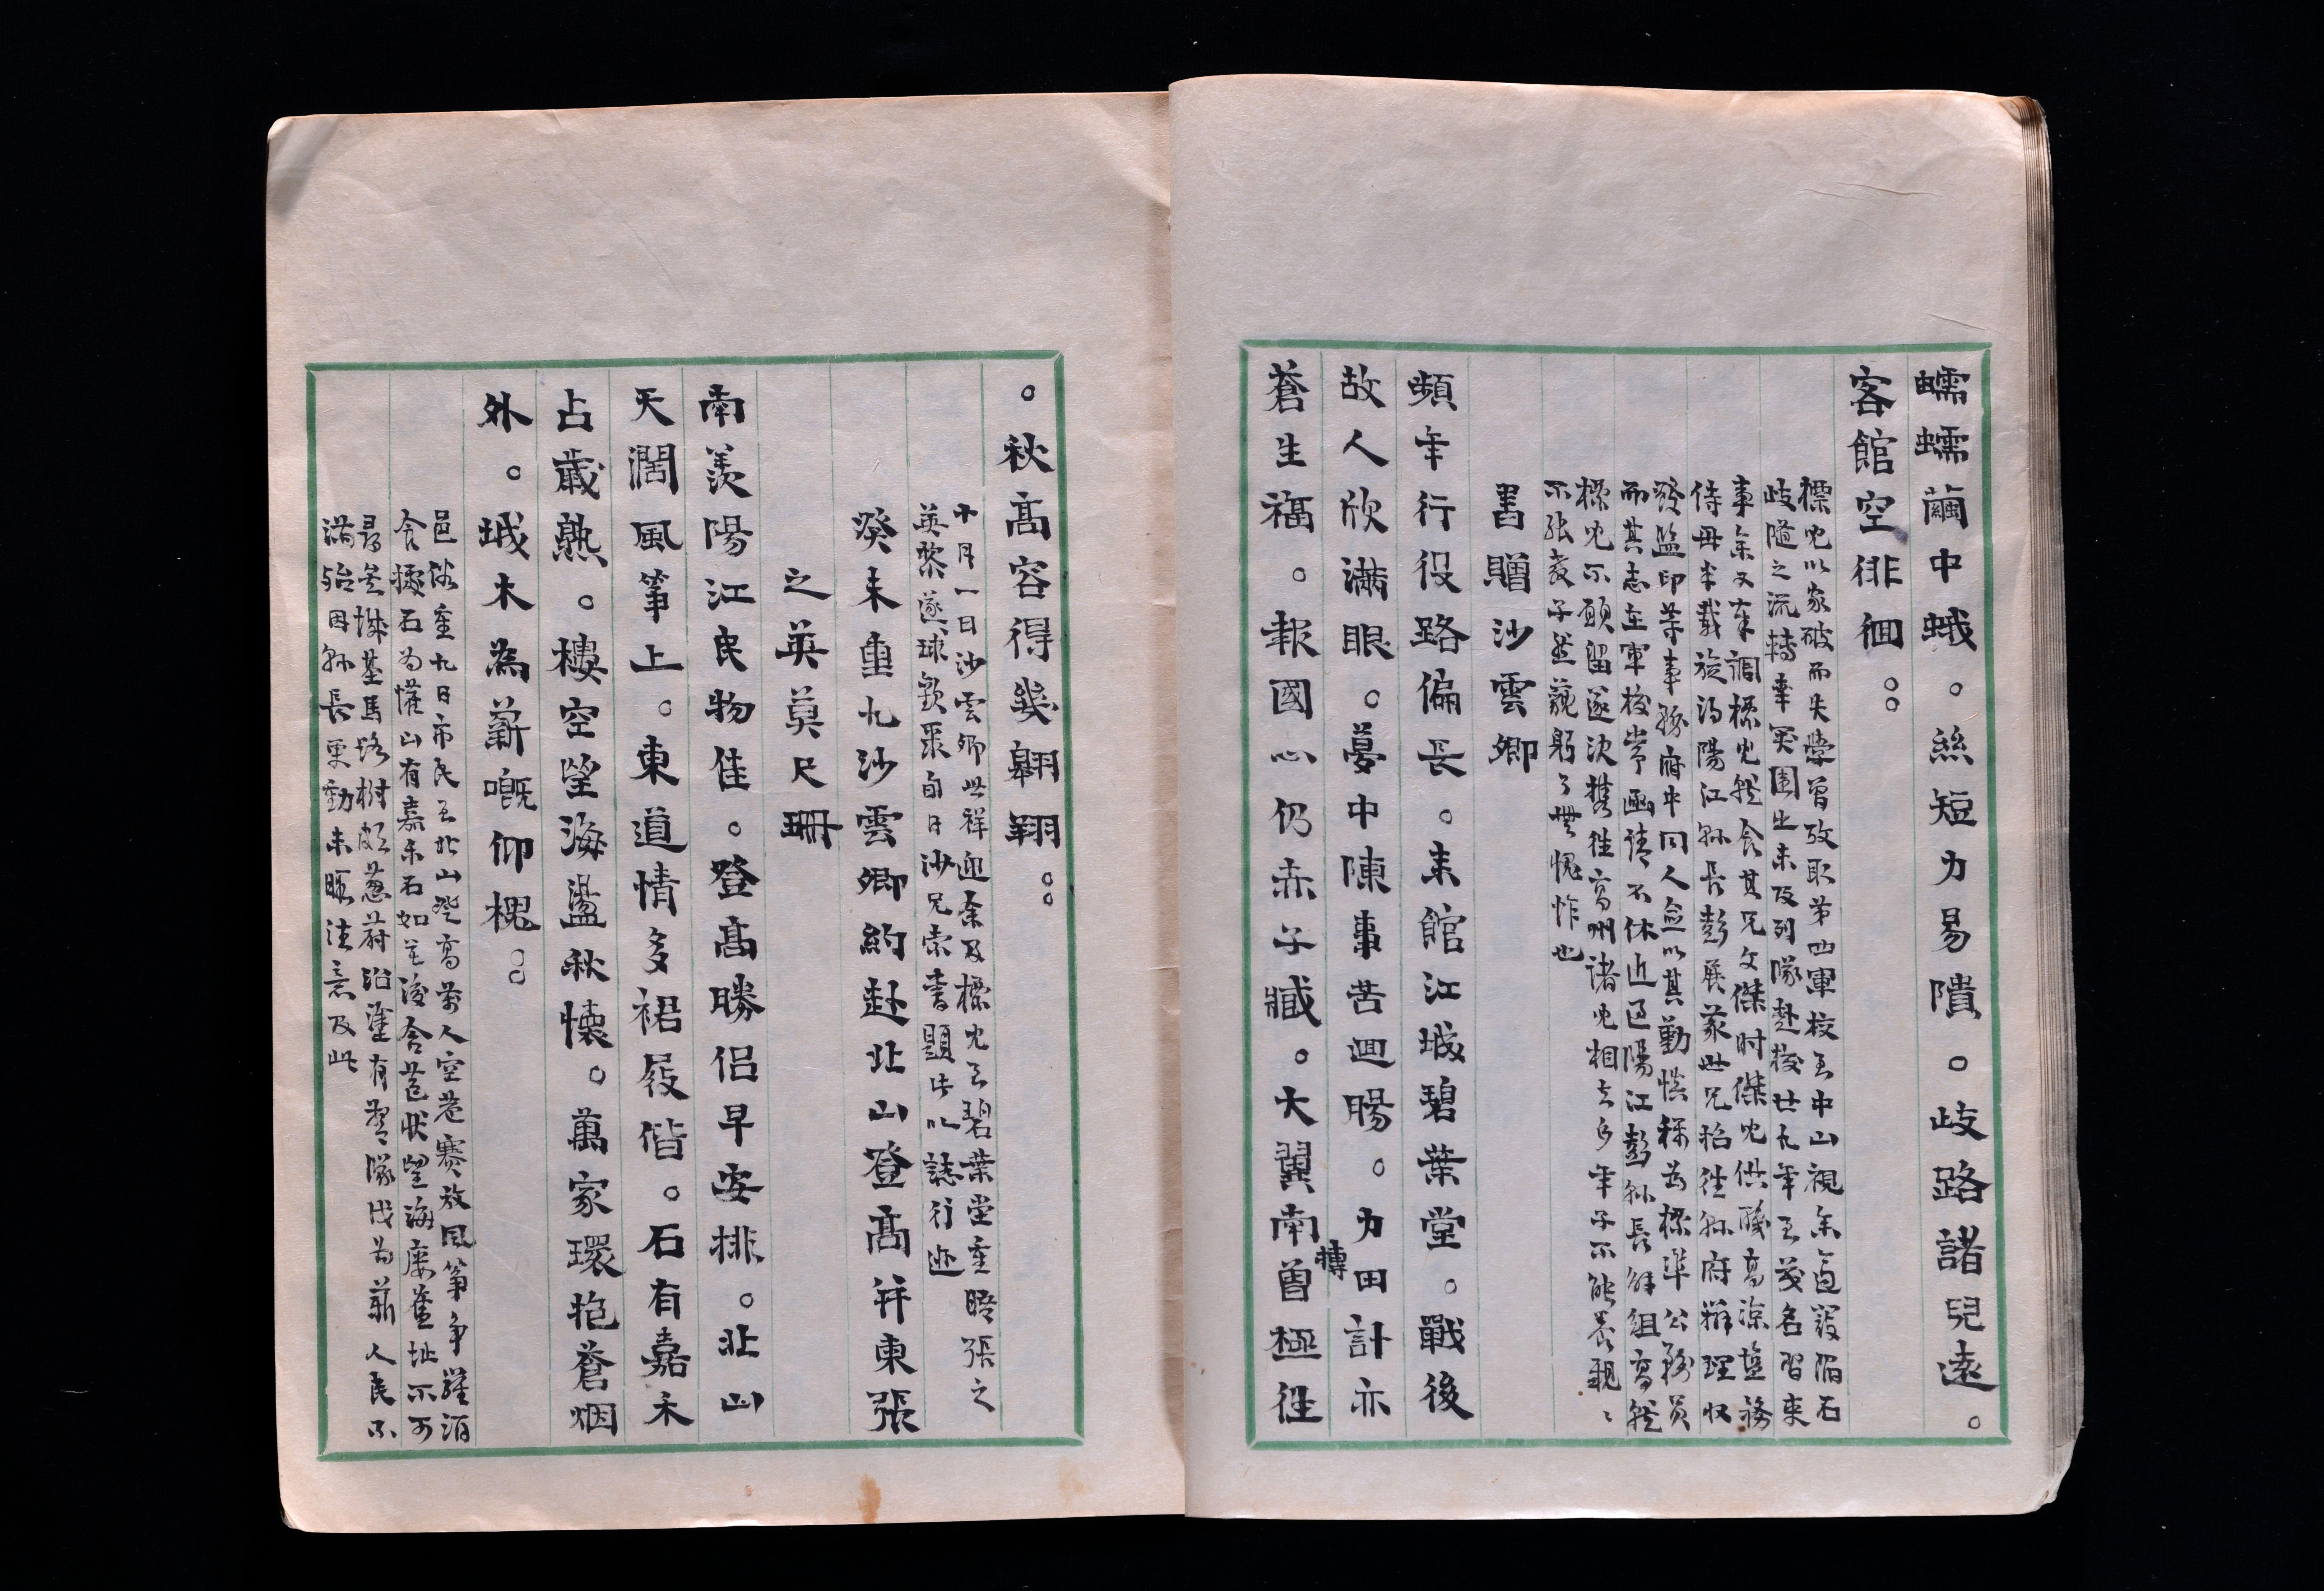 蠕蠕繭中蛾。絲短力易隤。歧路諸兒遠。
客館空徘徊。。
標兒以家破而失學曾攷取第四軍校至中山視余適寇陷石
歧隨之流轉幸突圍出未及列隊赴校廿九年至茂名習來
事余又奉調標兒然含其兄文傑时傑兒供職高涼鹽務
侍母半載旋得陽江縣長彭展蒙世兄招往縣府辦理收
發監印等事縣府中同人僉以其勤慎稱為標準公務員
而其志在軍校常函請不休近逅陽江彭縣長解組高然
標兒不願留遂決携往高州諸兒相去多年子不能養親〻
不能教子然藐躬了無愧怍也
書贈沙雲卿
頻年行役路偏長。耒館江城碧葉堂。戰後
故人欣滿眼。夢中陳事苦迴腸。力田計亦
蒼生福。報國心仍赤子臧。大翼南轉曾極往
。秋高容得幾翱翔。。
十月一日沙雲卿世祥迎余及標兒至碧葉堂重晤張之
英黎遂球歡聚旬日沙兄索書題此以誌行迹
癸未重九沙雲卿約赴北山登高幷柬張
之英莫尺珊
南羨陽江民物佳。登高勝侶早安排。北山
天濶風箏上。東道情多裙屐偕。石有嘉禾
占歲熟。樓空望海盪秋懷。萬家環抱蒼烟
外。城木為薪嘅仰槐。。
邑俗重九日市民至北山登高萬人空巷賽放風箏争羅酒
食據石為懽山有嘉禾石如至浚含苞狀望海廔舊址不可
尋矣城基馬路樹頗蔥蔚沿塗有砮隊伐為薪人民不
滿殆因縣長更動未暇注意及此